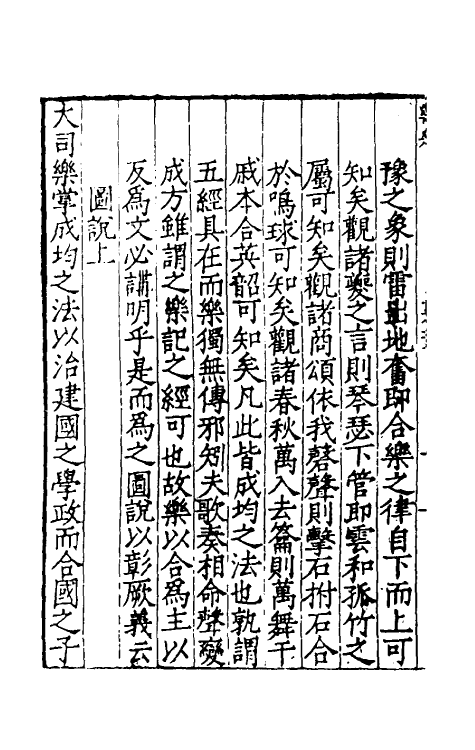 豫之象則雷出地奮即合樂之律自下而上可
知矣觀諸夔之言則琴瑟下管即雲和孤竹之
屬可知矣觀諸商頌依我磬聲則擊石拊石合
於鳴球可知矣觀諸春秋萬入去籥則萬舞干
戚本合英韶可知矣凡此皆成均之法也孰謂
五經具在而樂獨無傳邪矧夫歌奏相命聲變
成方雖謂之樂記之經可也故樂以合為主以
反為文必講明乎是而為之圖說以彰厥義云
圖說上
大司樂掌成均之法以治建國之學政而合國之子